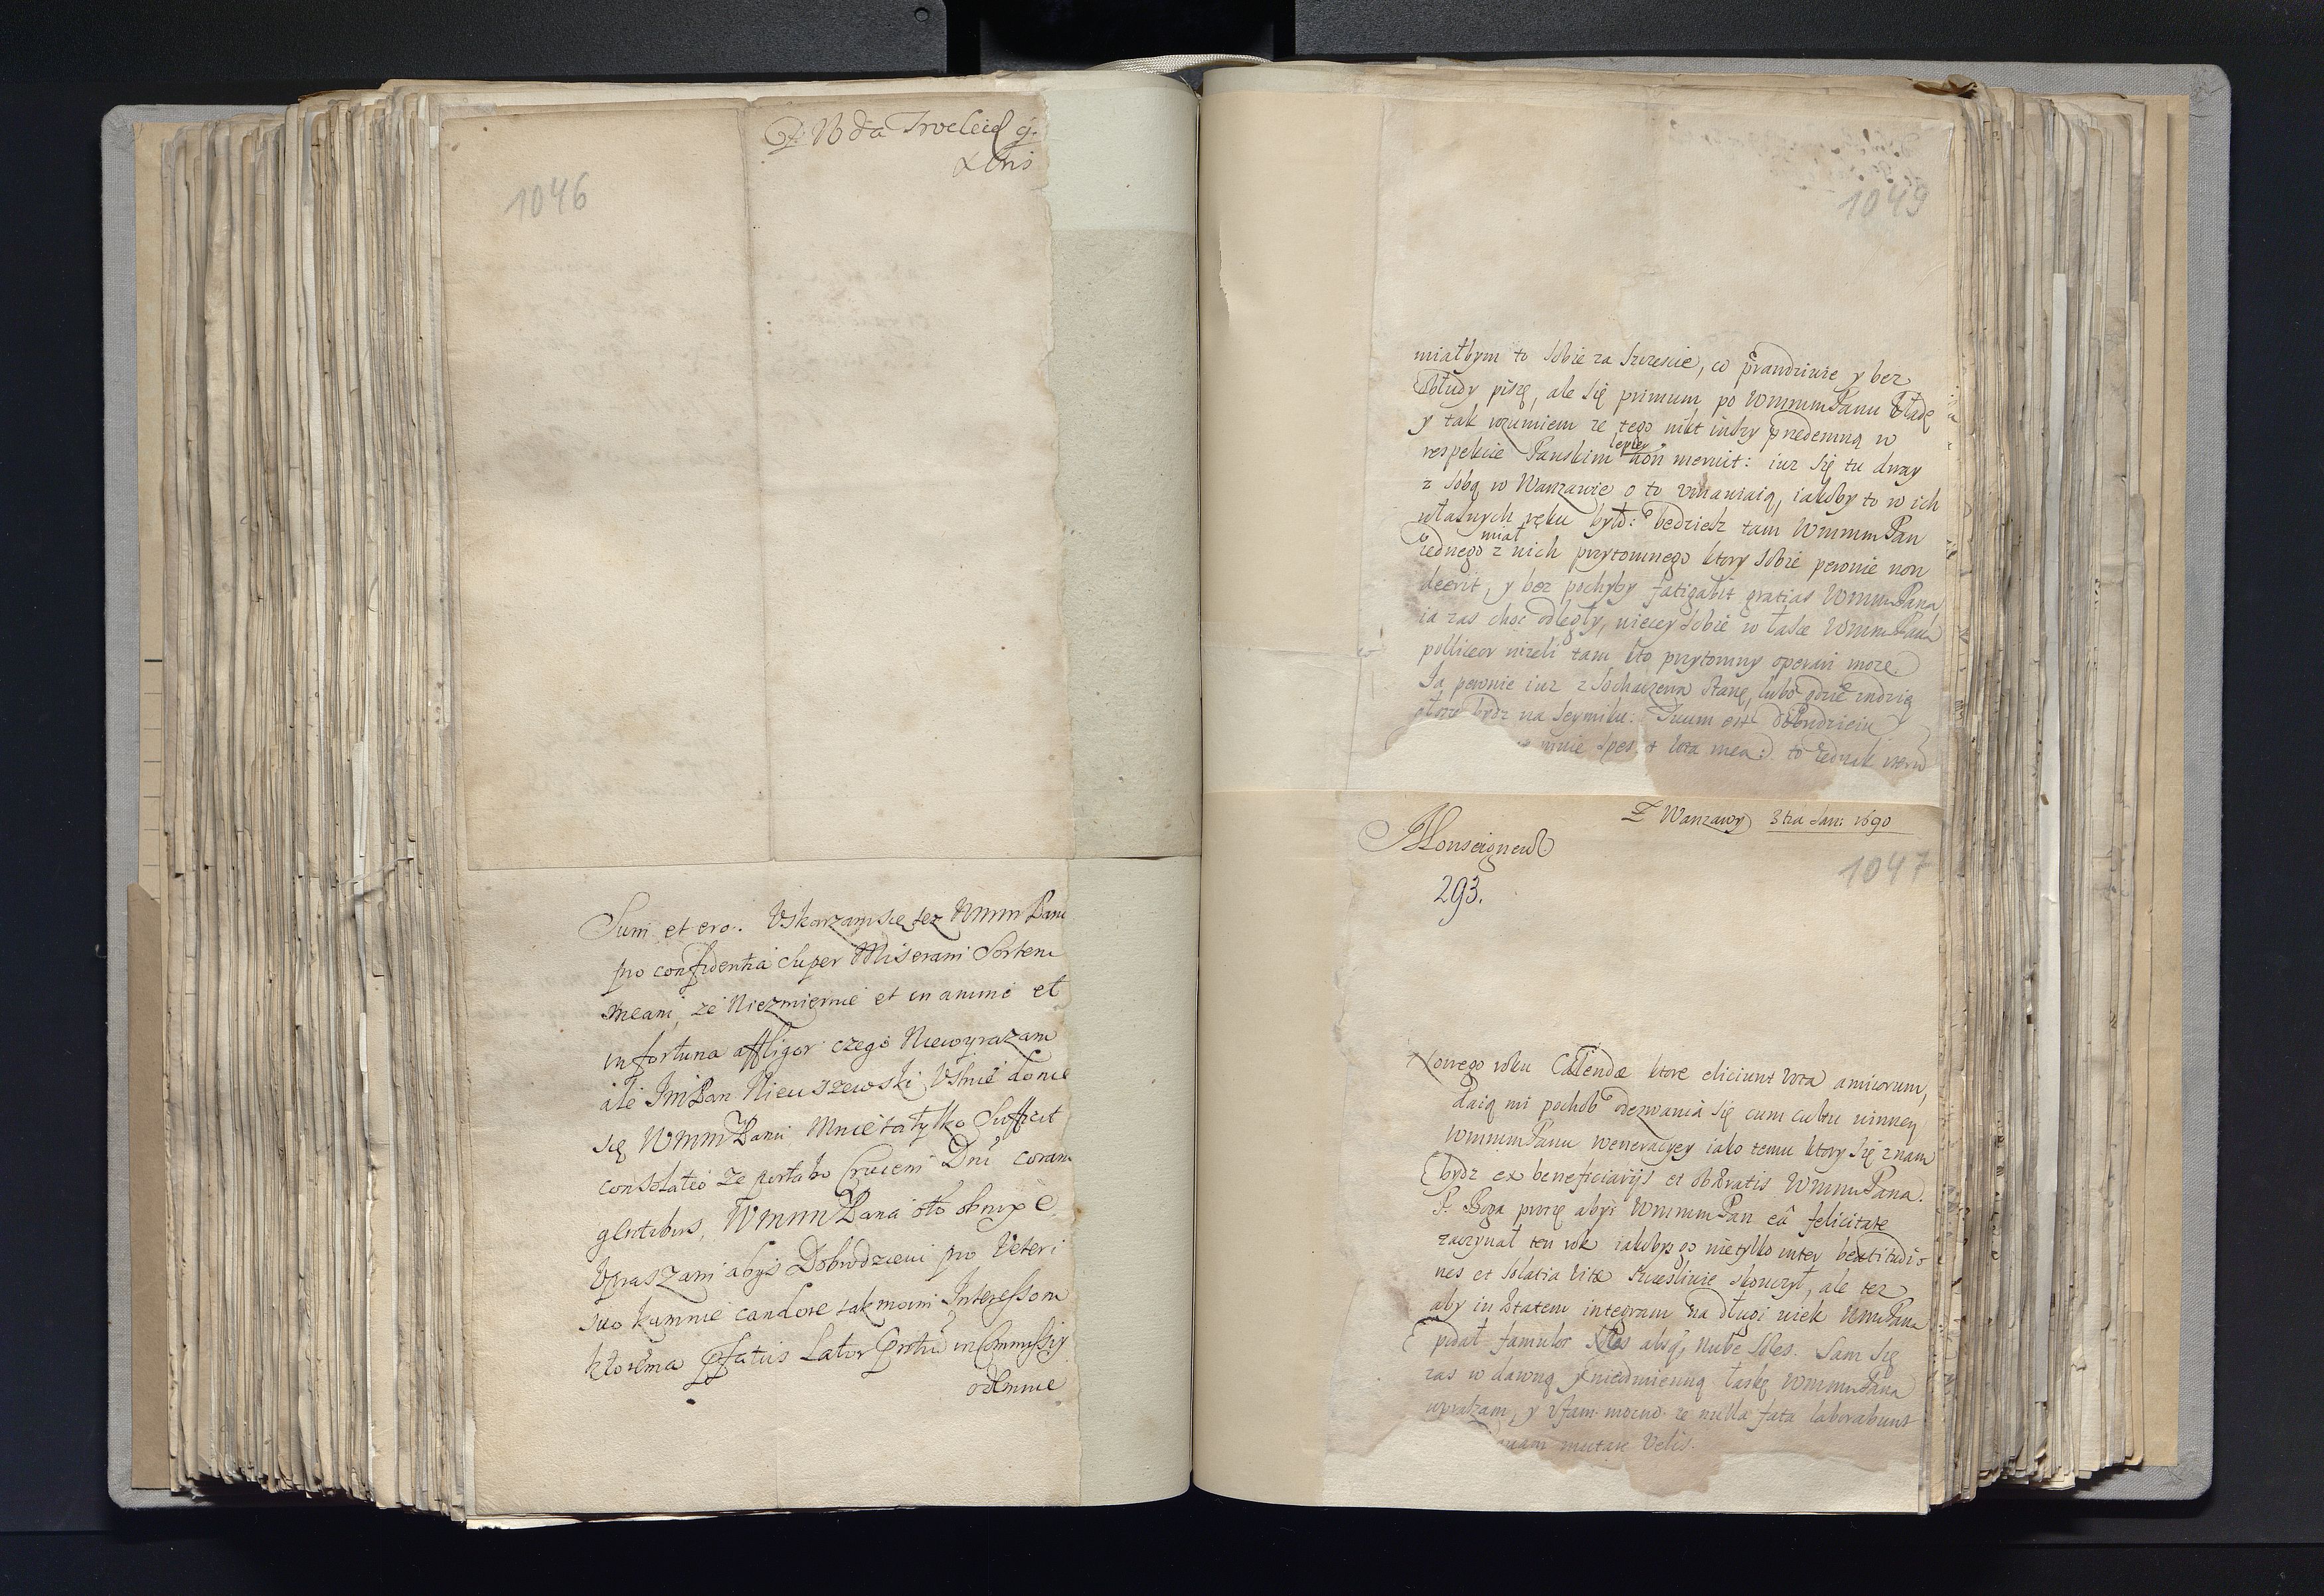 1046
Sum et ero. Uskarzam się tez WMM Panu
pro confidentia super Miseram Sortem
meam, ze Niezmiernie et in animo et
in fortuna affligor czego Niewyrazam
ale ImPan Nieuszewski Ustnie donie
się WMM Panu Mnie ta tylko Sufficit
consolatio ze portabo Crucem Dni coram
gentibus, WMM Pana oto obnixe
Upraszam abys Dobrodzieiu pro Veteri
suo kumnie candore tak moim Interessom
ktore ma Lator in Commissis
odemnie
1049
miałbym to sobie za szczescie, co prawdziwie y bez
Obłudy piszę, ale się primum po WMMM Panu kładę
y tak rozumiem ze tego nikt inszy przedemną w
respekcie Panskim lepiey non meruit: iuz się tu dway
z sobą w Warszawie o to umawiaią, iakoby to w ich
własnych ręku było: będziesz tam WMMM Pan
miał
iednego z nich przytomnego ktory sobie pewnie non
deerit, y bez pochyby fatigabit gratias WMMM Pana
ia zas choc odległy, wiecey sobie w łasce WMMM Pana
polliceor nizeli tam kto przytomny operari moze.
Ja pewnie iuz z Sochaczewa stanę, lubo gdzie indzie
bydz na Seymiku. Tuum est Dobrodzieiu
mnie spes et vota mea: to iednak
Z Warszawy 3tia Jan: 1690
Monseigneur
1047
293.
Nowego roku Calendæ ktore eliciunt vota amicorum,
daią mi pochob odezwania się cum cultu winney
WMMM Panu weneracyey iako temu ktory się znam
bydz ex beneficiarijs et obæratis WMMM Pana.
P. Boga proszę abys WMMM Pan eâ felicitate
zaczynał ten rok iakobys go nie tylko inter beatitudi-
nes et solatia vitæ szczesliwie skonczył, ale tez
aby in statem integram na długi wiek WMM Pana
podał famulos absq, nube soles. Sam się
zas w dawną y nieodmienną łaskę WMMM Pana
upraszam, y ufam mocno ze nulla fata laborabunt
mutare velis.